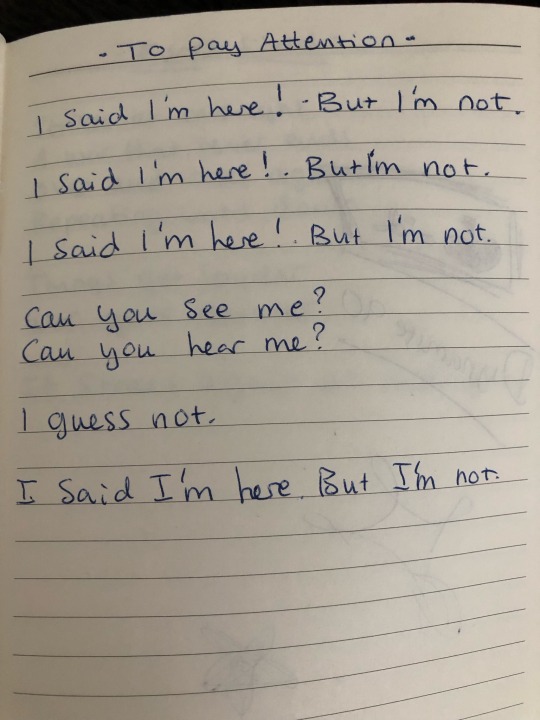 - To Pay Attention -
I said I'm here! . But I'm not.
I said I'm here! . But I'm not.
I said I'm here! . But I'm not.
Can you see me?
Can you hear me?
I guess not.
I said I'm here. But I'm not.